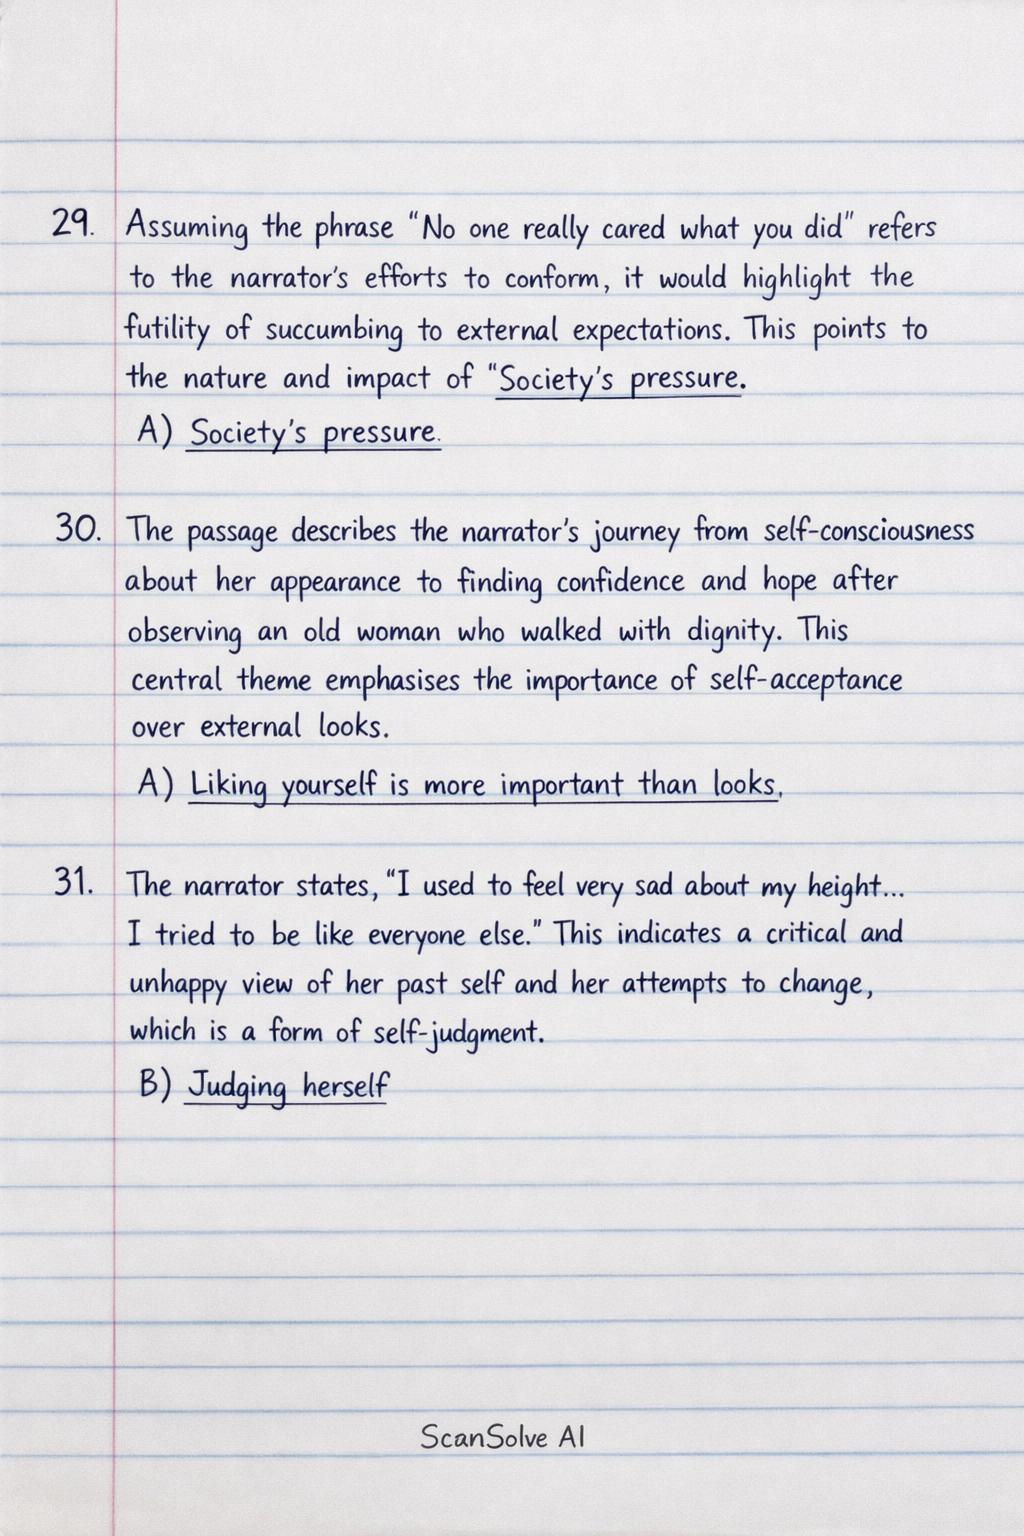 29. Assuming the phrase "No one really cared what you did" refers
to the narrator's efforts to conform, it would highlight the
futility of succumbing to external expectations. This points to
the nature and impact of "Society's pressure.
A) Society's pressure.
30. The passage describes the narrator's journey from self-consciousness
about her appearance to finding confidence and hope after
observing an old woman who walked with dignity. This
central theme emphasises the importance of self-acceptance
over external looks.
A) Liking yourself is more important than looks.
31. The narrator states, "I used to feel very sad about my height...
I tried to be like everyone else." This indicates a critical and
unhappy view of her past self and her attempts to change,
which is a form of self-judgment.
B) Judging herself
ScanSolve AI